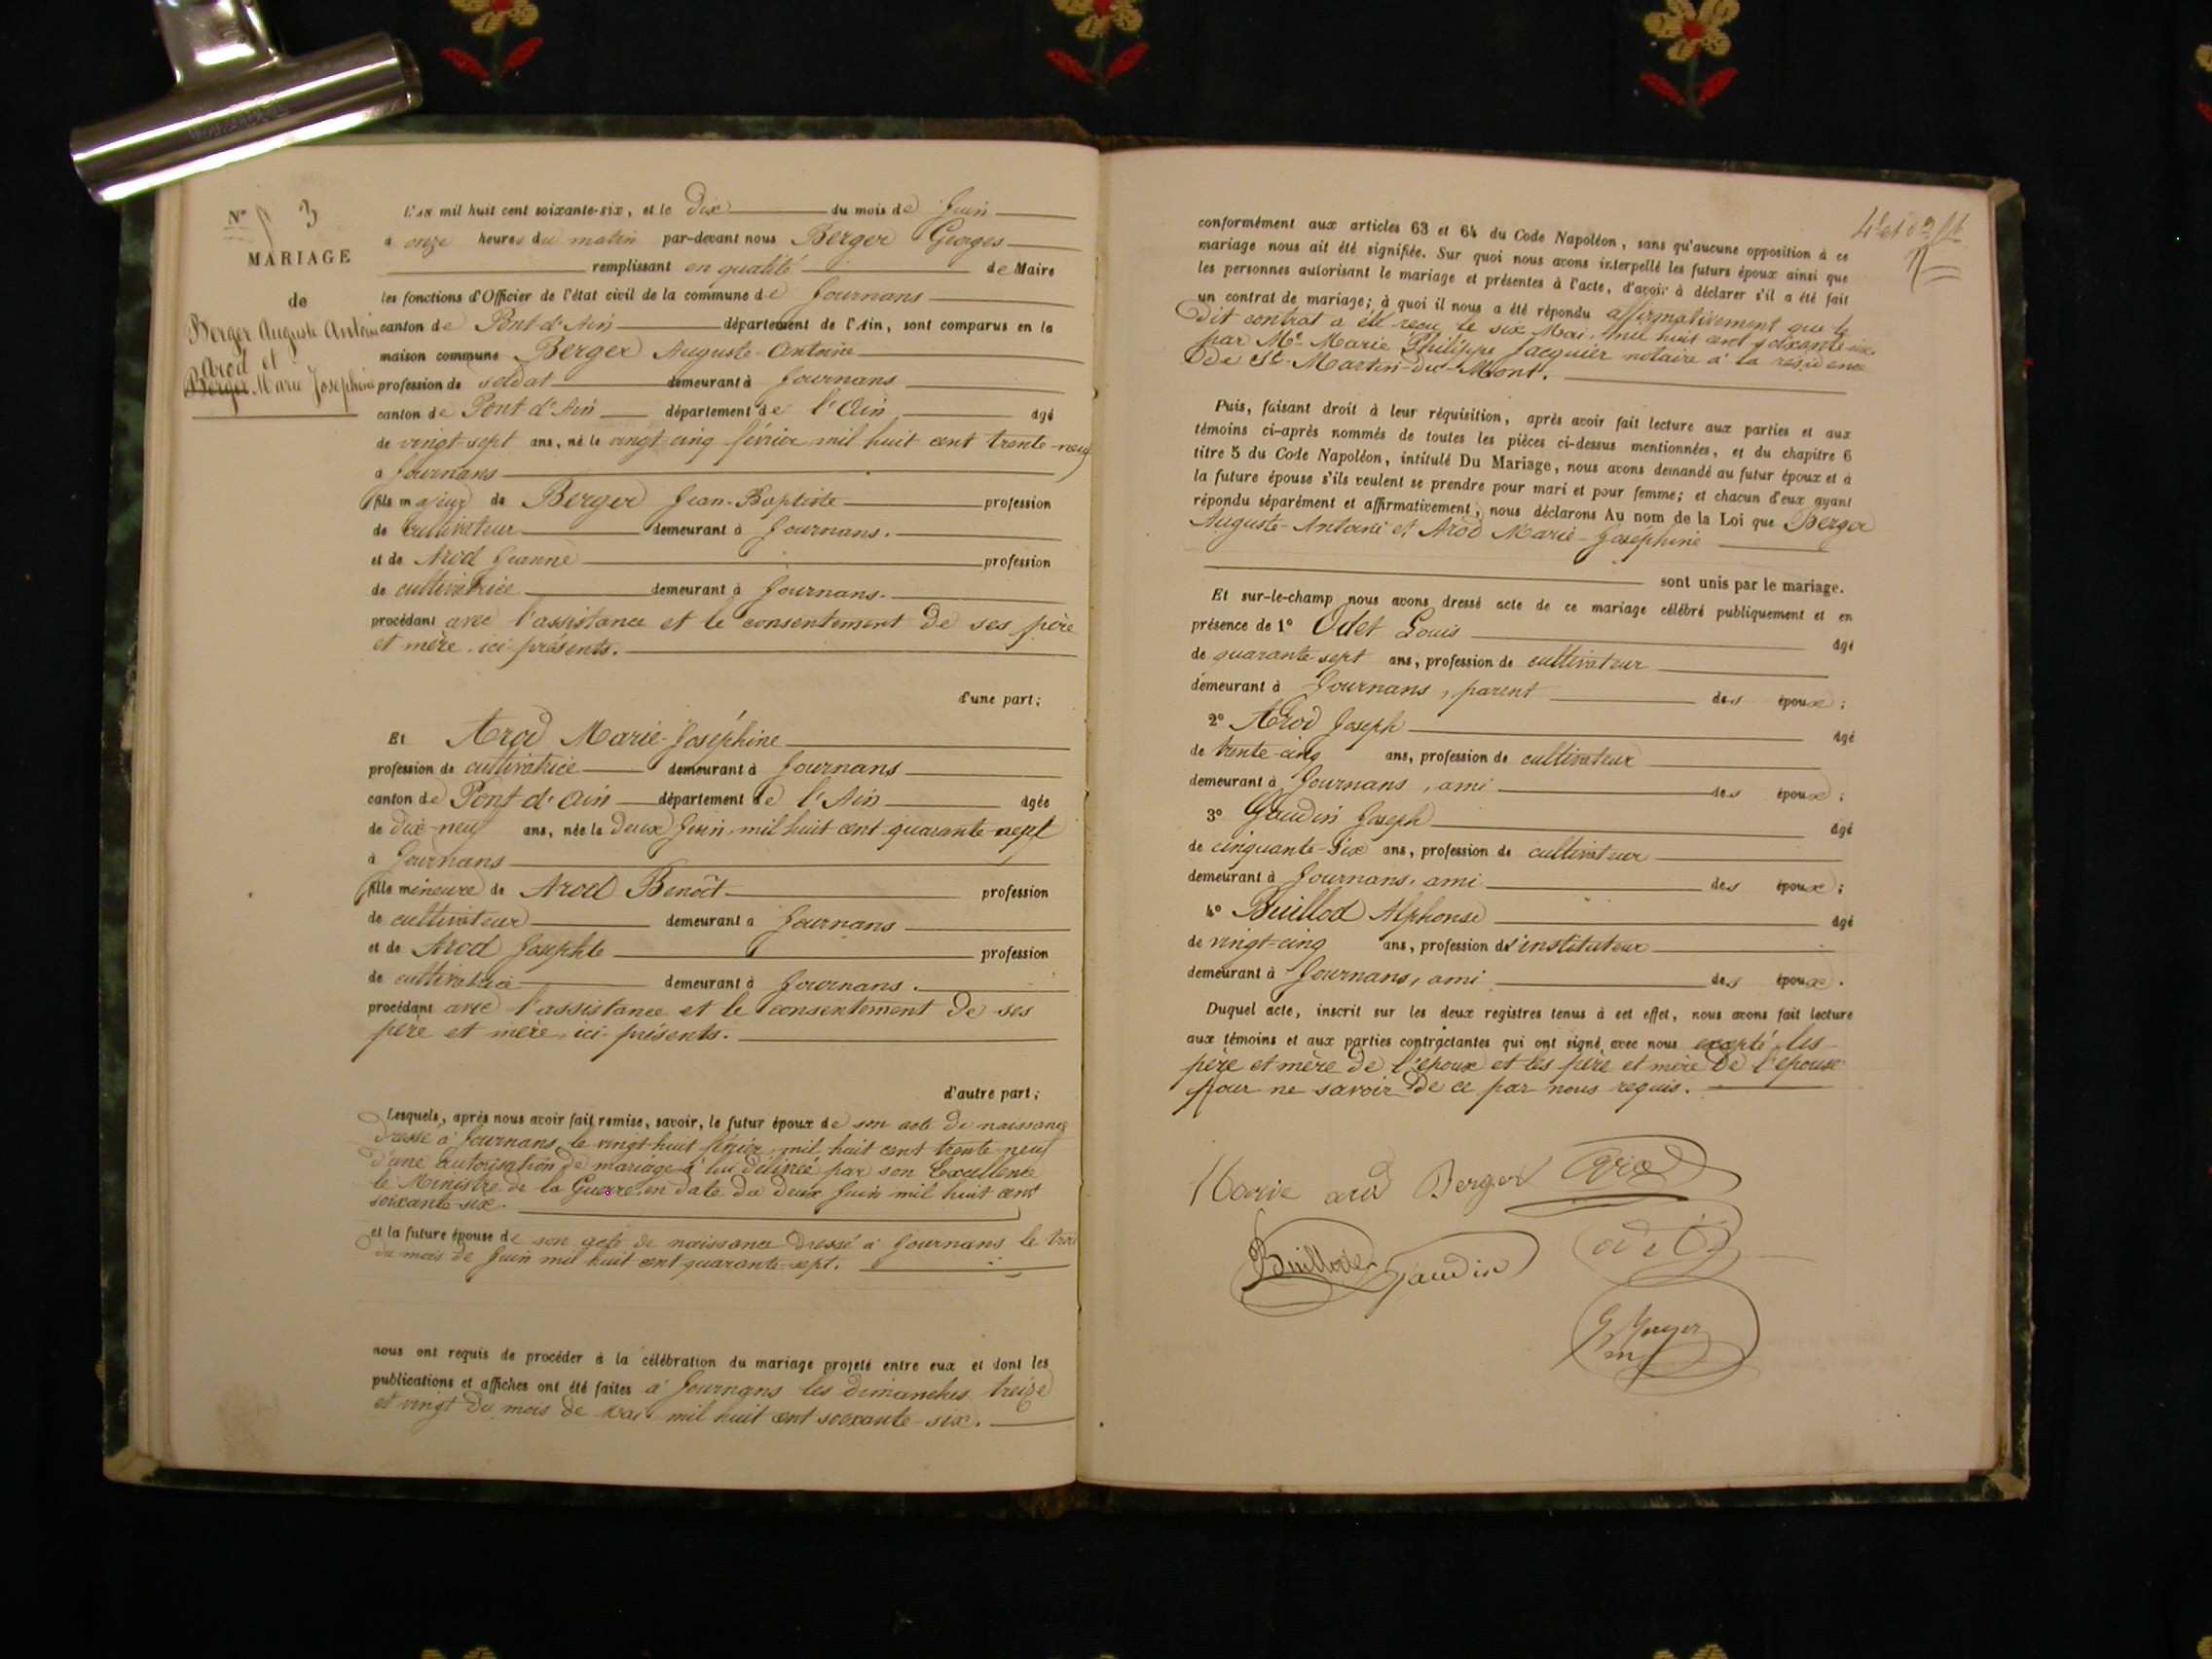 N° 3
MARIAGE
de
Berger Auguste Antoine
Arod et
Berger Marie Joséphine
L'AN mil huit cent soixante-six, et le Dix du mois de Juin
à onze heures du matin par-devant nous Berger Georges
remplissant en qualité de Maire
les fonctions d'Officier de l'état civil de la commune de Journans
canton de Pont d'Ain département de l'Ain, sont comparus en la
maison commune Berger Auguste-Antoine
profession de soldat demeurant à Journans
canton de Pont d'Ain département de l'Ain âgé
de vingt-sept ans, né le vingt-cinq février mil huit cent trente-neuf
à Journans
fils majeur de Berger Jean-Baptiste profession
de cultivateur demeurant à Journans.
et de Arod Jeanne profession
de cultivatrice demeurant à Journans.
procédant avec l'assistance et le consentement de ses père
et mère ici présents.
d'une part;
Et Arod Marie-Joséphine
profession de cultivatrice demeurant à Journans
canton de Pont d'Ain département de l'Ain âgée
de dix-neuf ans, née le deux Juin mil huit cent quarante-sept
à Journans
fille mineure de Arod Benoît profession
de cultivateur demeurant à Journans
et de Arod Josephte profession
de cultivatrice demeurant à Journans.
procédant avec l'assistance et le consentement de ses
père et mère ici présents.
d'autre part;
Lesquels, après nous avoir fait remise, savoir, le futur époux de son acte de naissance
dressé à Journans le vingt-huit février mil huit cent trente neuf
d'une autorisation de mariage à lui délivrée par son Excellence
le Ministre de la Guerre en date du deux Juin mil huit cent
soixante-six.
et la future épouse de son acte de naissance dressé à Journans le trois
du mois de Juin mil huit cent quarante-sept.
nous ont requis de procéder à la célébration du mariage projeté entre eux et dont les
publications et affiches ont été faites à Journans les dimanches treize
et vingt du mois de Mai mil huit cent soixante-six.
conformément aux articles 63 et 64 du Code Napoléon, sans qu'aucune opposition à ce
mariage nous ait été signifiée. Sur quoi nous avons interpellé les futurs époux ainsi que
les personnes autorisant le mariage et présentes à l'acte, d'avoir à déclarer s'il a été fait
un contrat de mariage; à quoi il nous a été répondu affirmativement que le
dit contrat a été reçu le six Mai mil huit cent soixante-six
par Me Marie Philippe Jacquier notaire à la résidence
de St-Martin-du-Mont.
Puis, faisant droit à leur réquisition, après avoir fait lecture aux parties et aux
témoins ci-après nommés de toutes les pièces ci-dessus mentionnées, et du chapitre 6
titre 5 du Code Napoléon, intitulé Du Mariage, nous avons demandé au futur époux et à
la future épouse s'ils veulent se prendre pour mari et pour femme; et chacun d'eux ayant
répondu séparément et affirmativement, nous déclarons Au nom de la Loi que Berger
Auguste-Antoine et Arod Marie-Joséphine
sont unis par le mariage.
Et sur-le-champ nous avons dressé acte de ce mariage célébré publiquement et en
présence de 1° Odet Louis âgé
de quarante-sept ans, profession de cultivateur
demeurant à Journans, parent des époux;
2° Arod Joseph âgé
de trente-cinq ans, profession de cultivateur
demeurant à Journans, ami des époux;
3° Gaudin Joseph âgé
de cinquante-six ans, profession de cultivateur
demeurant à Journans, ami des époux;
4° Buillod Alphonse âgé
de vingt-cinq ans, profession d'instituteur
demeurant à Journans, ami des époux.
Duquel acte, inscrit sur les deux registres tenus à cet effet, nous avons fait lecture
aux témoins et aux parties contractantes qui ont signé avec nous excepté les
père et mère de l'époux et les père et mère de l'épouse
pour ne savoir de ce par nous requis.
Marie arod Berger Arod
Buillod Gaudin odet